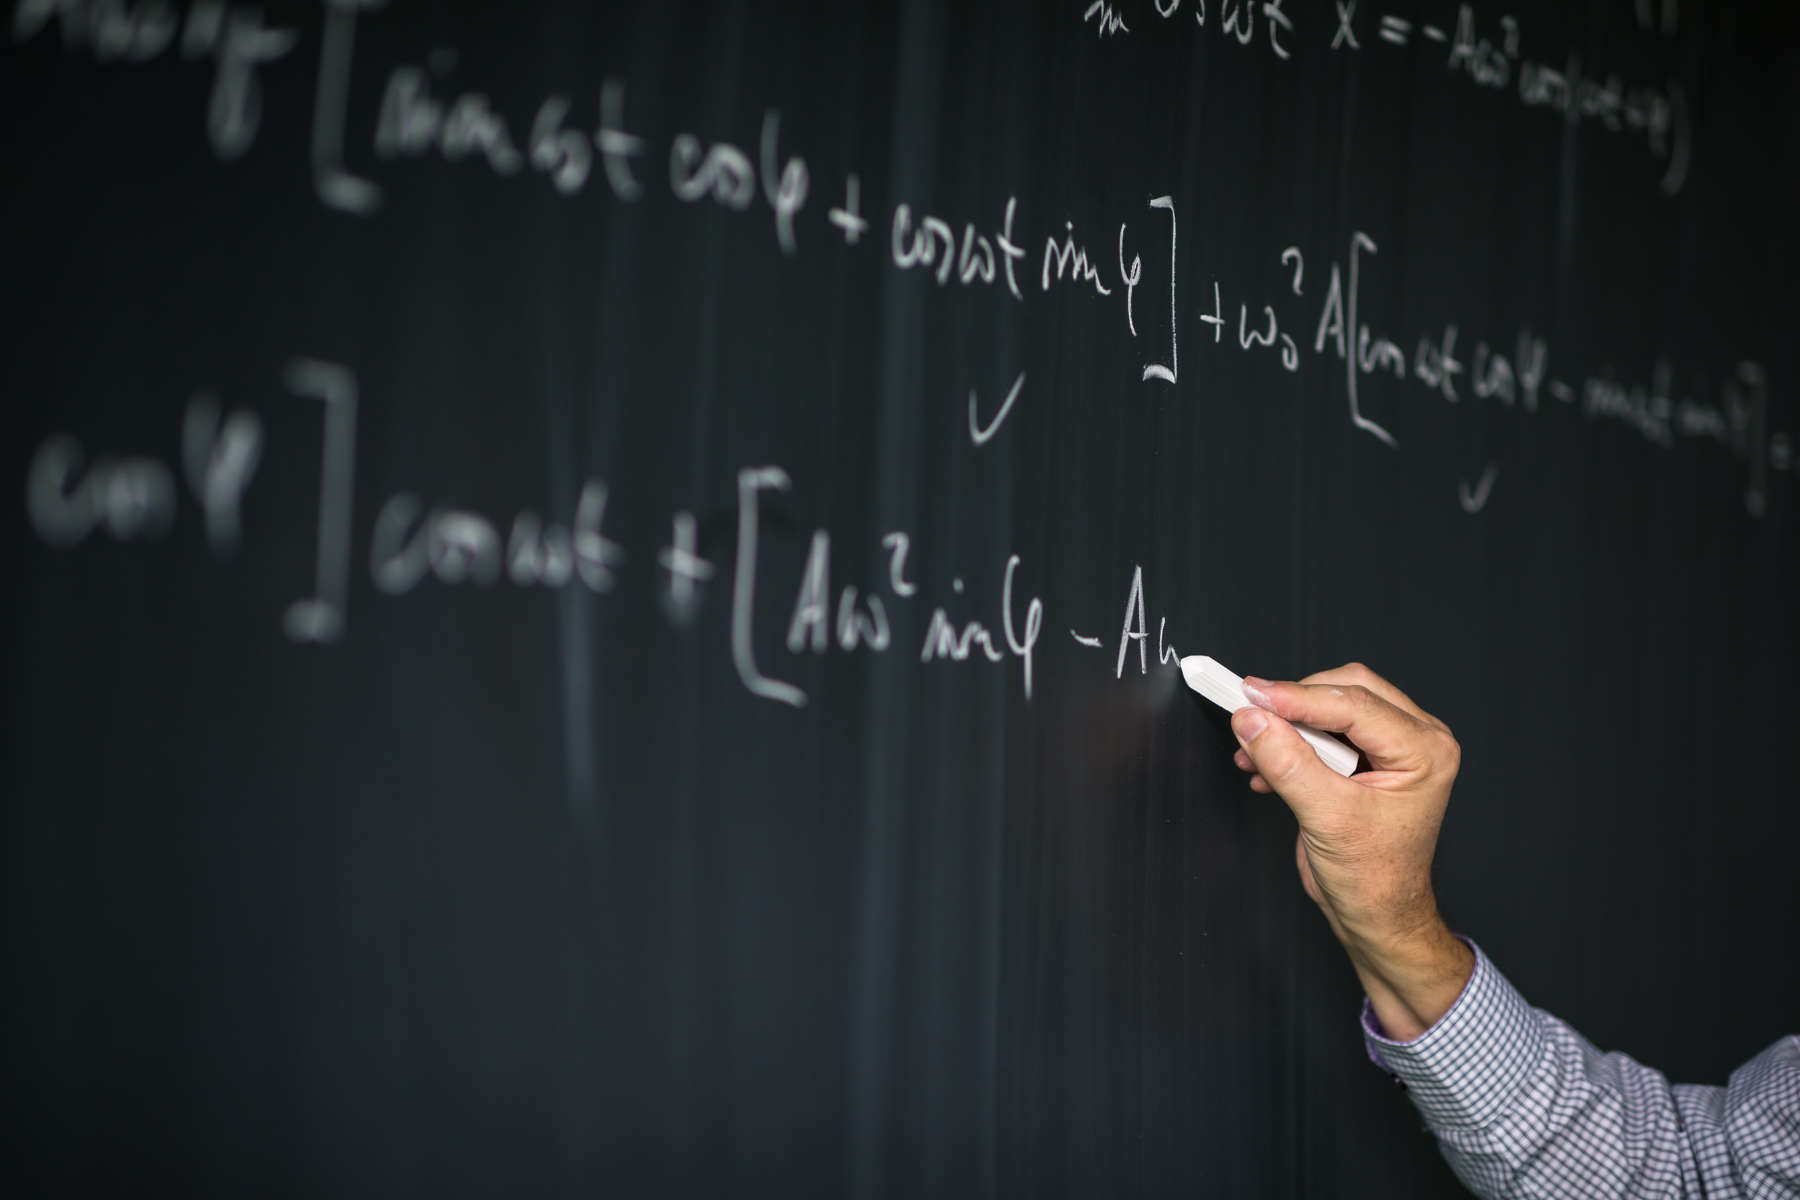 cos ωt ẍ = -Aω² cos(ωt+φ)
[sin ωt cos φ + cos ωt sin φ] + ω₀² A[cos ωt cos φ - sin ωt sin φ] =
✓ ✓
cos φ] cos ωt + [Aω² sin φ - Aω